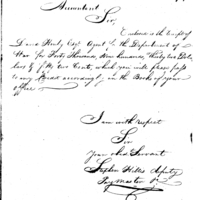 Accountant
Sir,
I enclose the receipt of
David Henly Esqr Agent to the Department of
War for Forty Thousand, Nine hundred, thirty two Dol-
lars & fifty two Cents, which you will please pass
to my Credit accordingly, on the Books of your
office.
I am with respect
Sir
Your Obt Servant
deputy
Pay Master